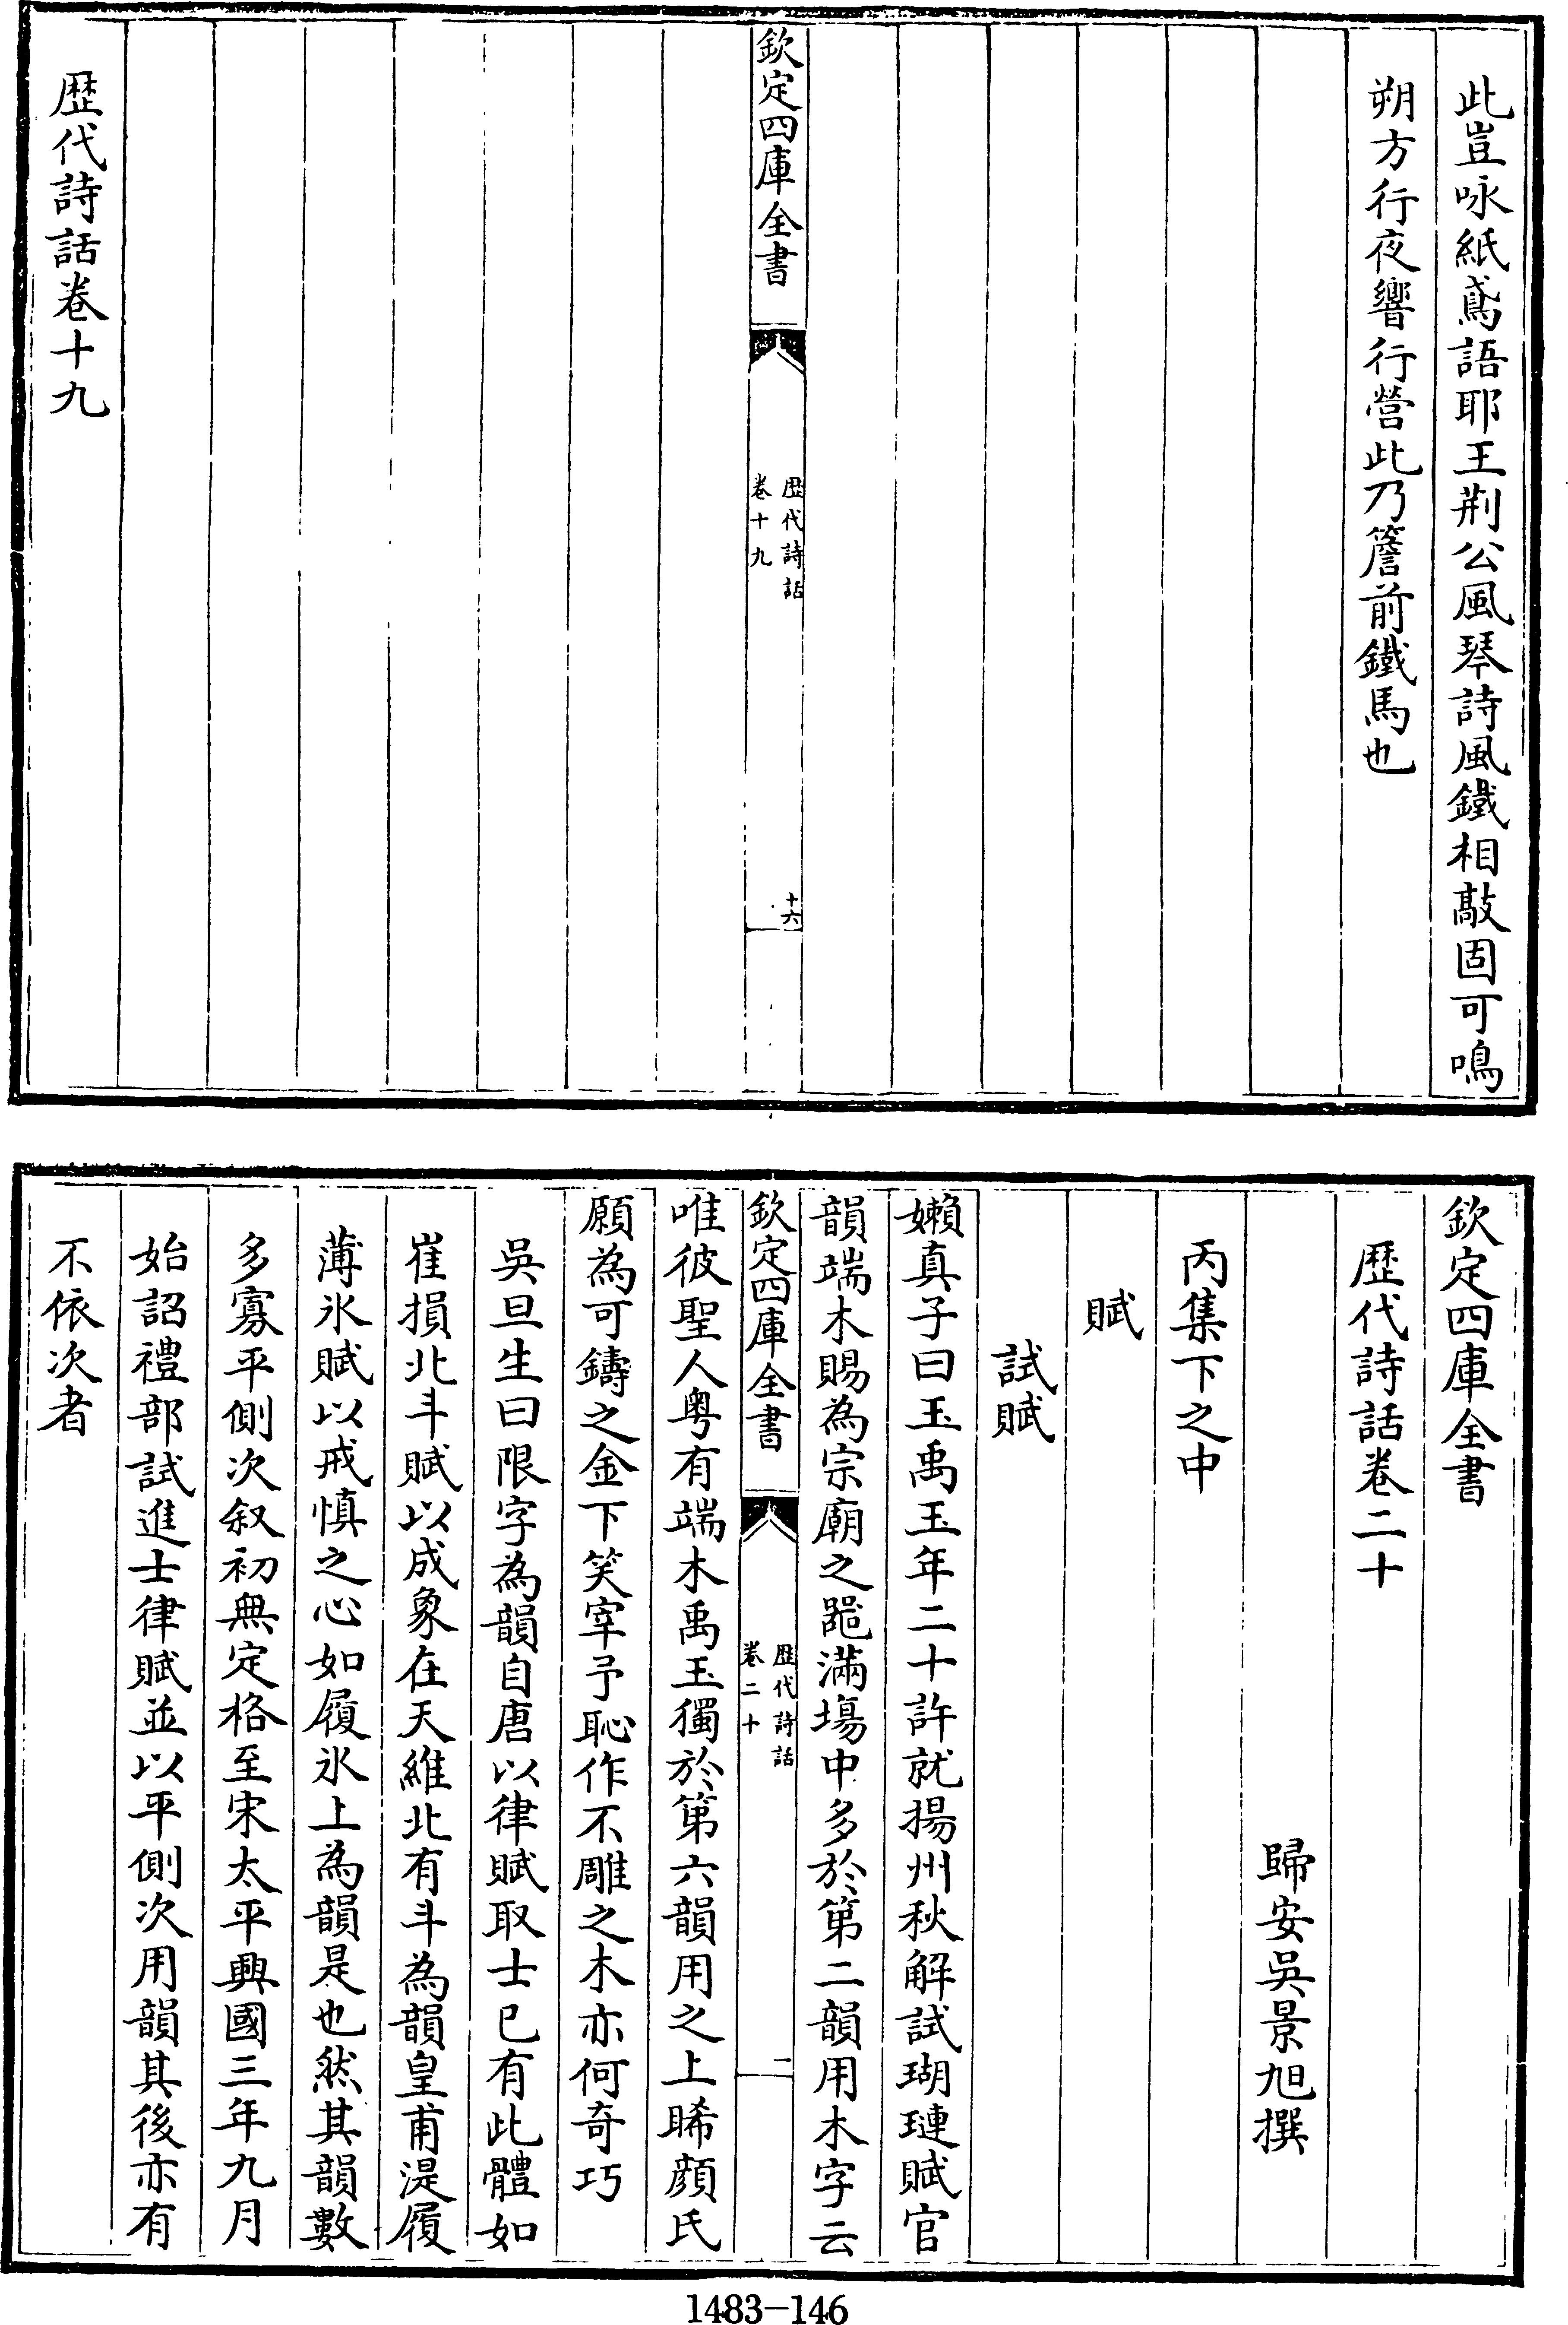 此豈咏紙鳶語耶王荆公風琴詩風鐵相敲固可鳴
朔方行夜響行營此乃簷前鐵馬也
欽定四庫全書
歴代詩話
卷十九
十六
歴代詩話卷十九
欽定四庫全書
歴代詩話卷二十
歸安吳景旭撰
丙集下之中
賦
試賦
嬾真子曰王禹玉年二十許就揚州秋解試瑚璉賦官
韻端木賜為宗廟之噐滿塲中多於第二韻用木字云
欽定四庫全書
歴代詩話
卷二十
二
唯彼聖人粤有端木禹玉獨於第六韻用之上睎顔氏
願為可鑄之金下笑宰予恥作不雕之木亦何奇巧
吳旦生曰限字為韻自唐以律賦取士已有此體如
崔損北斗賦以成象在天維北有斗為韻皇甫湜履
薄氷賦以戒慎之心如履氷上為韻是也然其韻數
多寡平側次叙初無定格至宋太平興國三年九月
始詔禮部試進士律賦並以平側次用韻其後亦有
不依次者
1483-146